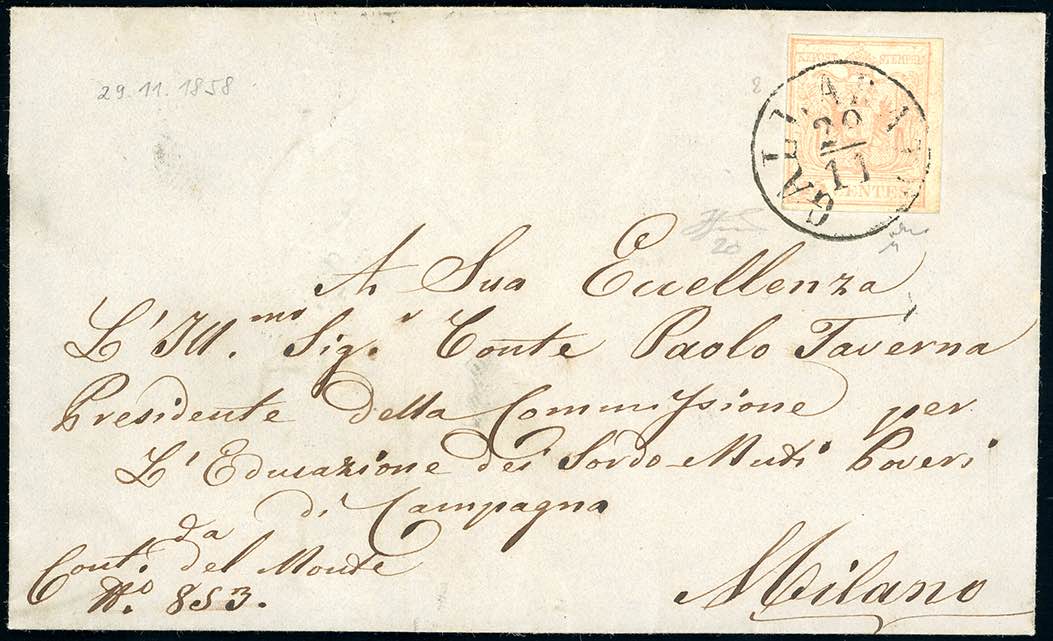 29.11.1858
KKPOST-STEMPEL
GALLARATE
29
11
CENTES
20
A Sua Eccellenza
L'Ill.mo Sig.r Conte Paolo Taverna
Presidente della Commissione per
L'Educazione dei Sordo-Muti Poveri
di Campagna
da
Cont. del Monte
N.o 853.
Milano